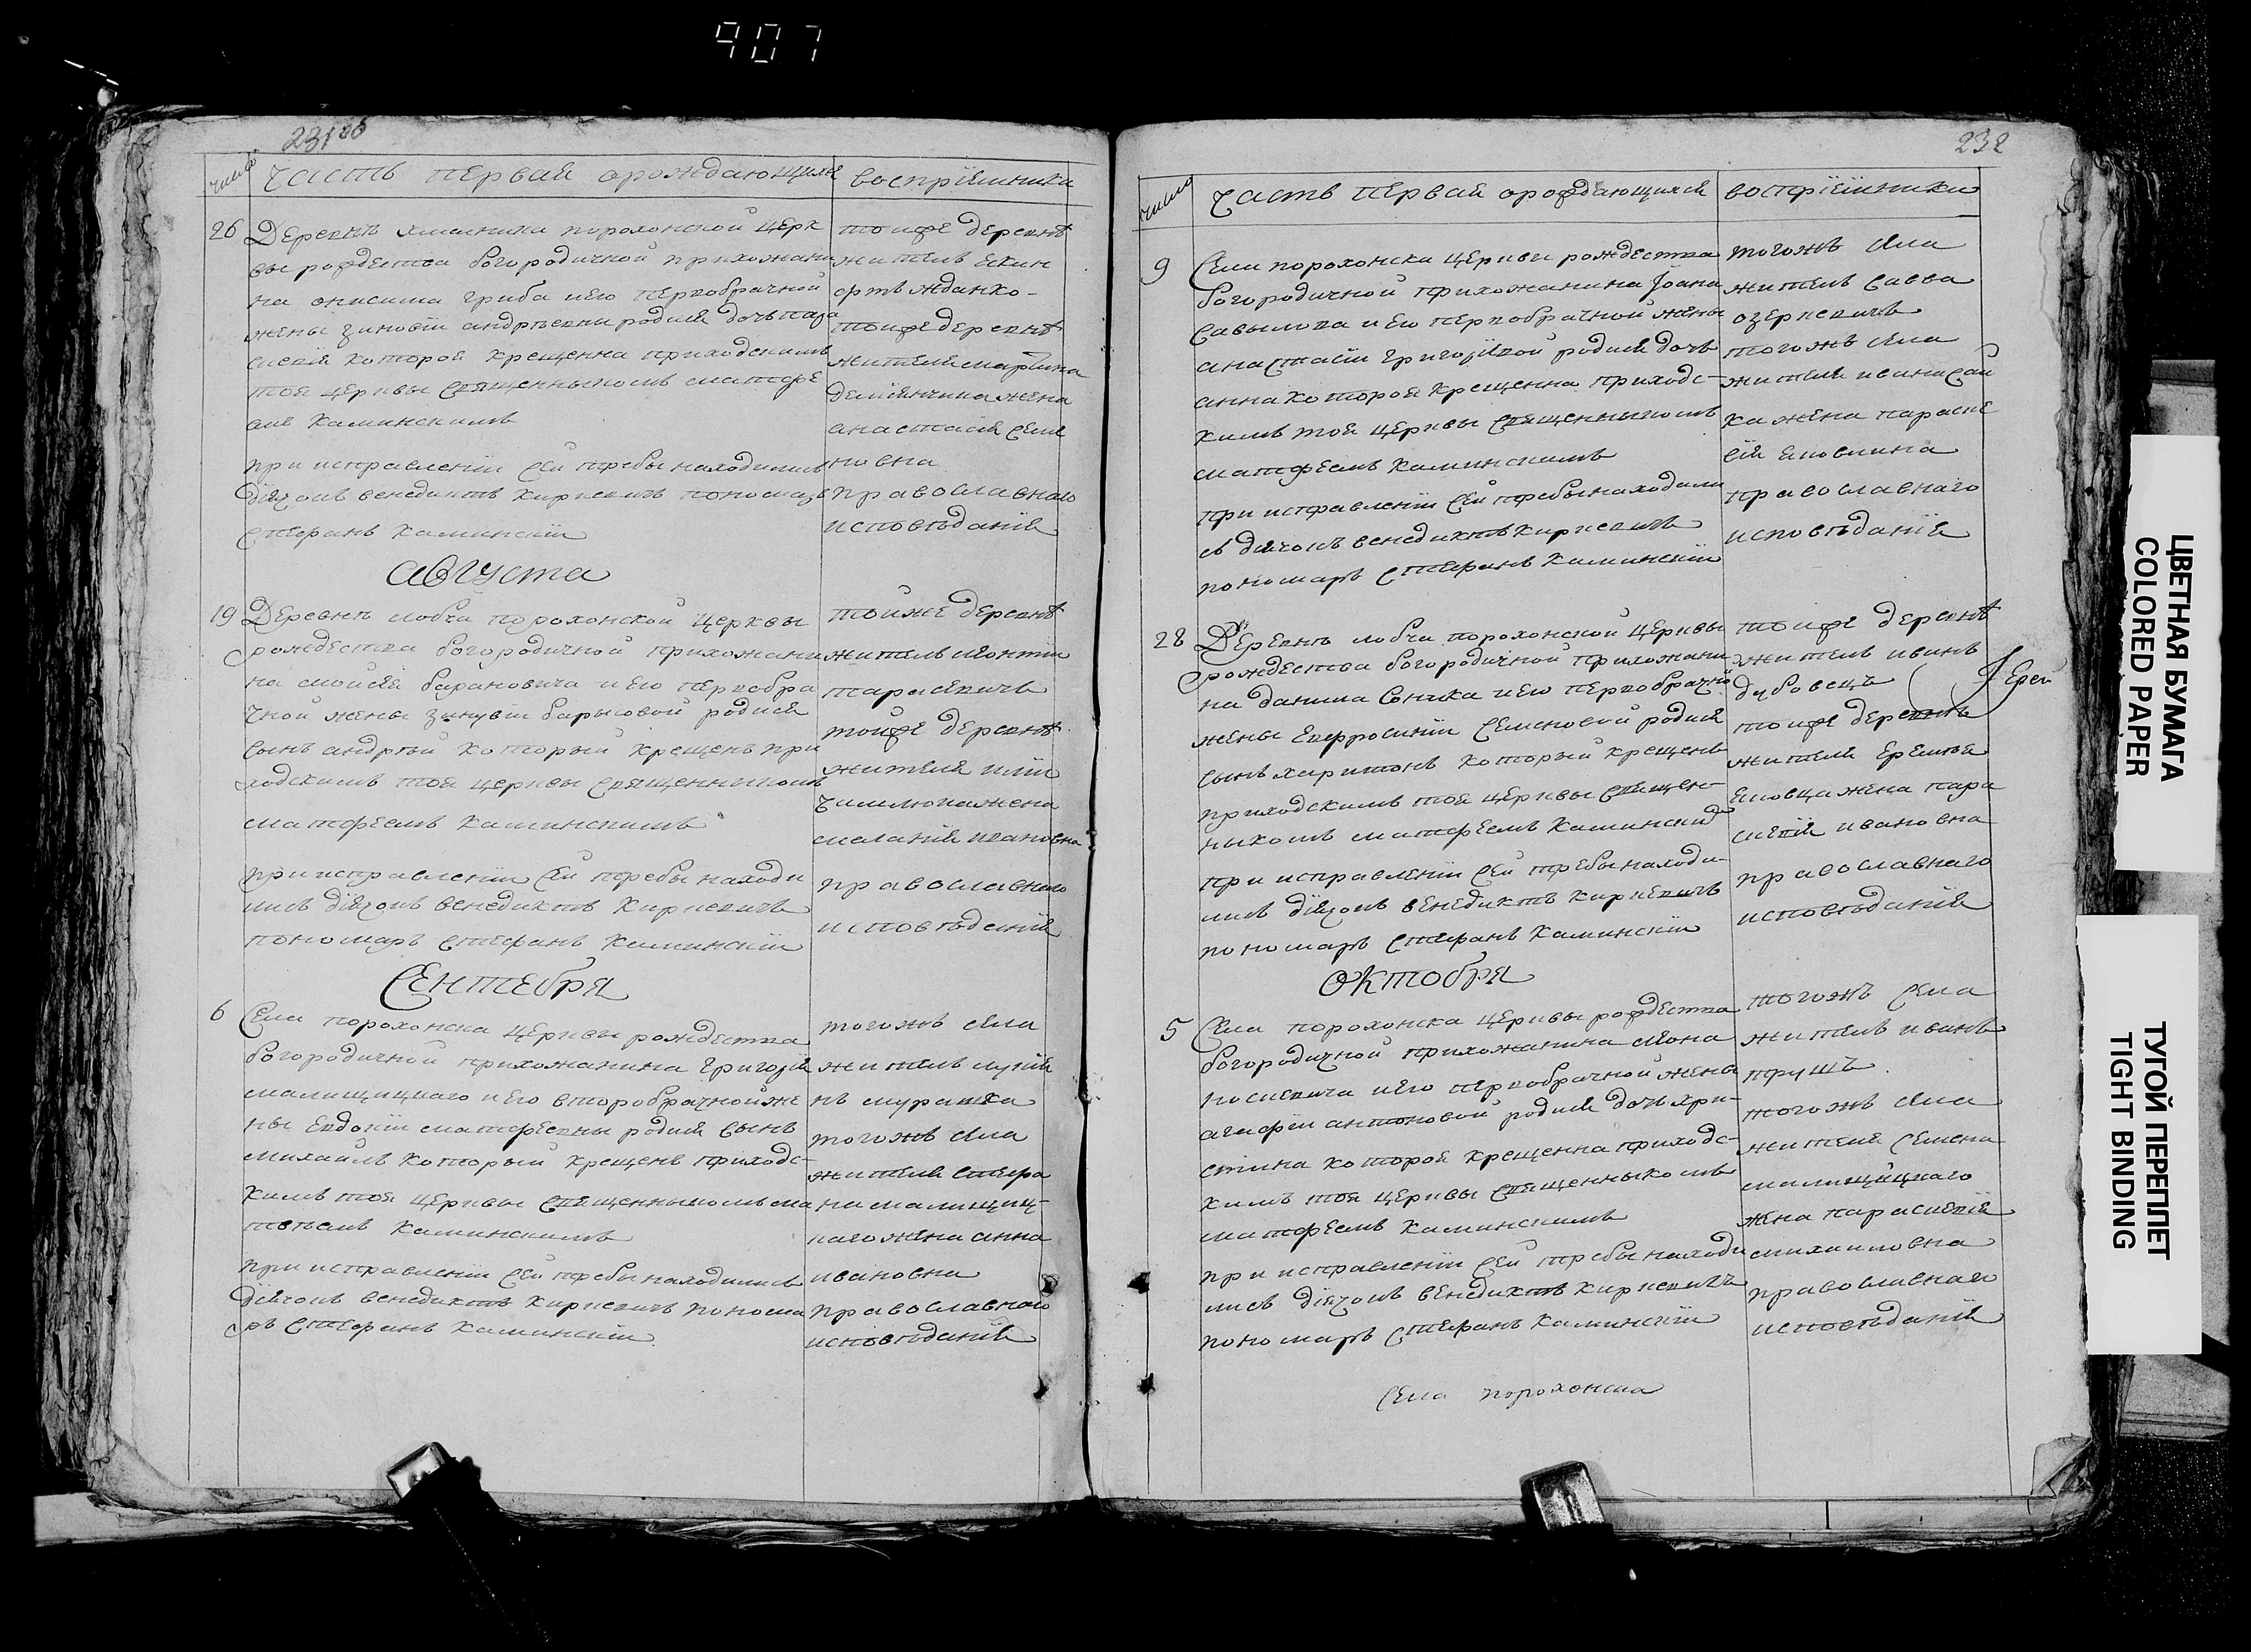 907
231об
числа
Часть первая орождающихся
восприемники
26
Деревнѣ хмелника порохонской церк
вы рождества богородичной прихожани
на онисима гриба и его первобрачной
жены зиновіи андрѣевни родися дочь пара
скевія которая крещенна приходскимъ
тоя церквы священникомъ матфе
емъ Каминскимъ
при исправленіи сей требы находились
діячокъ венедиктъ Киркевичъ пономаръ
стефанъ Каминскій
тойже деревнѣ
житель
тойже деревнѣ
жителя мартина
жена
анастасія семе
новна
православнаго
исповѣданія
августа
19
Деревнѣ лобча порохонской церквы
рождества богородичной прихожани
на моисея барановича и его первобра
чной жены зинувіи барысовой родися
сынъ андрѣй который крещенъ при
ходскимъ тоя церквы священникомъ
матфеемъ Каминскимъ
при исправленіи сей требы находи
лись діячокъ венедиктъ Киркевичъ
пономаръ стефанъ Каминскій
тойже деревнѣ
житель леонтій
тарасевичъ
тойже деревнѣ
жителя иліи
жена
меланія ивановна
православнаго
исповѣданія
Сентебря
6
Села порохонска церквы рождества
богородичной прихожанина григорія
малищицкаго и его второбрачной же
ны Евдокіи матфеевны родися сынъ
михаилъ который крещенъ приходс-
кимъ тоя церквы священникомъ ма
твѣемъ Каминскимъ
при исправленіи сей требы находились
діячокъ венедиктъ Киркевичъ понома
ръ стефанъ Каминскій
тогожъ села
житель лукія
нъ мурашка
тогожъ села
жителя стефа
на малищиц-
каго жена анна
ивановна
православнаго
исповѣданія
232
числа
Часть первая орождающихся
восприемники
9
Села порохонска церквы рождества
богородичной прихожанина Іоана
савылова и его первобрачной жены
анастасіи григорівой родися дочь
анна которая крещенна приходс-
кимъ тоя церквы священникомъ
матфеемъ Каминскимъ
при исправленіи сей требы находили
сь діячокъ венедиктъ Киркевичъ
пономаръ стефанъ Каминскій
тогожъ села
житель савва
озеркевичъ
тогожъ села
жителя
жена параске
вія
православнаго
исповѣданія
28
Деревнѣ лобча порохонской церквы
рождества богородичной прихожани
на данила соника и его первобрачной
жены Евфросиніи семеновой родися
сынъ харитонъ который крещенъ
приходскимъ тоя церквы священ-
ныкомъ матфеемъ Каминским
при исправленіи сей требы находи-
лись діячокъ венедиктъ Киркевичъ
пономаръ стефанъ Каминскій
тойже деревнѣ
житель иванъ
дубовецъ
тойже деревнѣ
жителя еремѣя
яковца жена пара
скевія ивановна
православнаго
исповѣданія
Іерей
октобря
5
Села порохонска церквы рождества
богородичной прихожанина леона
носкевича и его первобрачной жены
агафіи антоновой родися дочь хри-
стина которая крещенна приходс-
кимъ тоя церквы священныкомъ
матфеемъ Каминскимъ
при исправленіи сей требы находи
лись діячокъ венедиктъ Киркевичъ
пономаръ стефанъ Каминскій
тогожъ села
житель иванъ
прушъ
тогожъ села
жителя семена
малищицкаго
жена параскевія
михаиловна
православнаго
исповѣданія
Села порохонска
ЦВЕТНАЯ БУМАГА
COLORED PAPER
ТУГОЙ ПЕРЕПЛЕТ
TIGHT BINDING